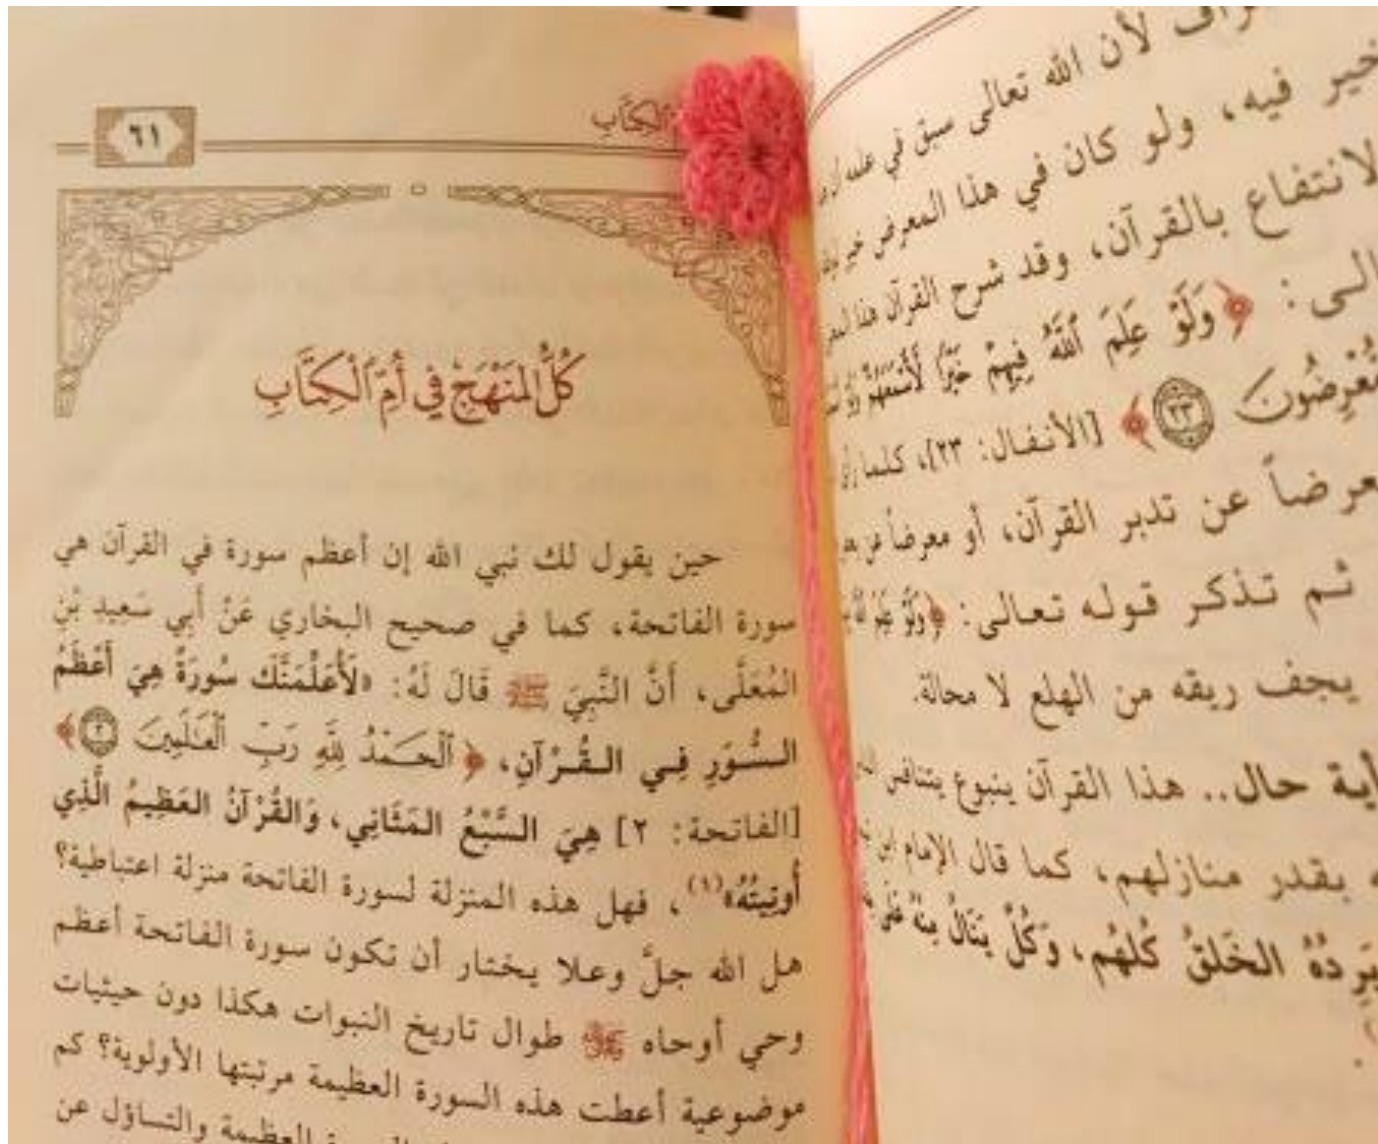 راف لأن الله تعالى سبق في علمه أن
خير فيه، ولو كان في هذا المعرض خير
لانتفاع بالقرآن، وقد شرح القرآن هذا
الى: ﴿وَلَوْ عَلِمَ ٱللَّهُ فِيهِمْ خَيْرًا لَّأَسْمَعَهُمْ وَلَوْ
مُّعْرِضُونَ ٢٣﴾ [الأنفال: ٢٣]، كلما
معرضاً عن تدبر القرآن، أو معرضاً عن
ثم تذكر قوله تعالى: ﴿وَلَوْ عَلِمَ ٱللَّهُ
يجف ريقه من الهلع لا محالة.
آية حال.. هذا القرآن ينبوع يتنافس
بقدر منازلهم، كما قال الإمام ابن
يَرِدُهُ الخَلقُ كُلهُم، وَكُلٌّ يَنَالُ مِنهُ عَلَى
الكِتَاب
٦١
كُلُّ المَنْهَجِ فِي أُمِّ ٱلْكِتَابِ
حين يقول لك نبي الله إن أعظم سورة في القرآن هي
سورة الفاتحة، كما في صحيح البخاري عَنْ أَبِي سَعِيدِ بْنِ
المُعَلَّى، أَنَّ النَّبِيَّ ﷺ قَالَ لَهُ: «لَأُعَلِّمَنَّكَ سُورَةً هِيَ أَعْظَمُ
السُّوَرِ فِي القُرْآنِ، ﴿ٱلْحَمْدُ لِلَّهِ رَبِّ ٱلْعَٰلَمِينَ ٢﴾
[الفاتحة: ٢] هِيَ السَّبْعُ المَثَانِي، وَالقُرْآنُ العَظِيمُ الَّذِي
أُوتِيتُهُ»(١)، فهل هذه المنزلة لسورة الفاتحة منزلة اعتباطية؟
هل الله جلَّ وعلا يختار أن تكون سورة الفاتحة أعظم
وحي أوحاه ﷺ طوال تاريخ النبوات هكذا دون حيثيات
موضوعية أعطت هذه السورة العظيمة مرتبتها الأولوية؟ كم
السورة العظيمة والتساؤل عن